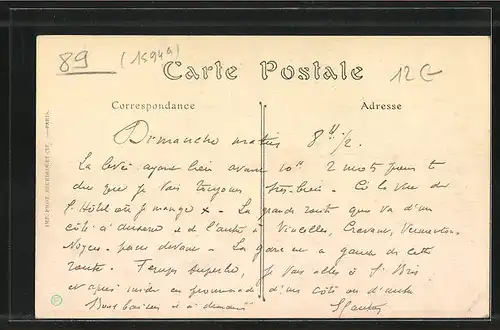 89
(15949)
12 €
Carte Postale
Correspondance
Adresse
Dimanche matin 8 h 1/2.
La levée ayant lieu avant 10 h 2 mots pour te
dire que je vais toujours très bien. Ci la vue de
l'Hôtel où je mange x. La grande route que va d'un
côté à Auxerre et de l'autre à Vincelles, Cravant, Vermenton
Noyers passe devant. La gare est à gauche de cette
route. Temps superbe, je vais aller à St Bris
et après midi en promenade d'un côté ou d'autre
Bons baisers et à demain